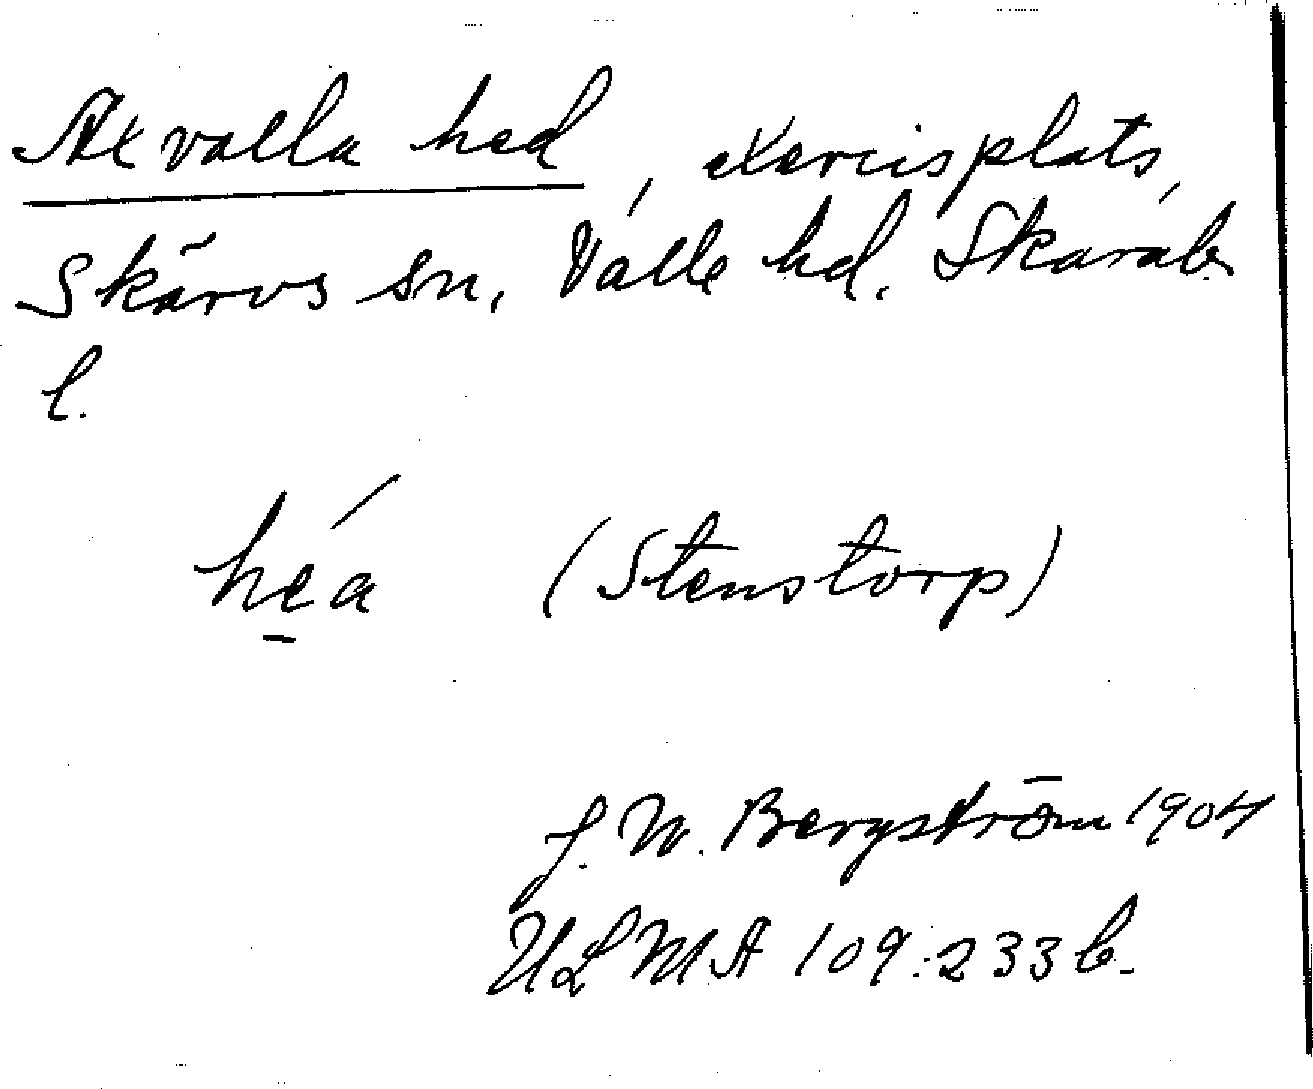 Axvalla hed, exercisplats,
Skärvs sn, Valle hd, Skarab.
l.
hea ́ (Stenstorp)
J. W. Bergström 1904
ULMA 109:233 b.